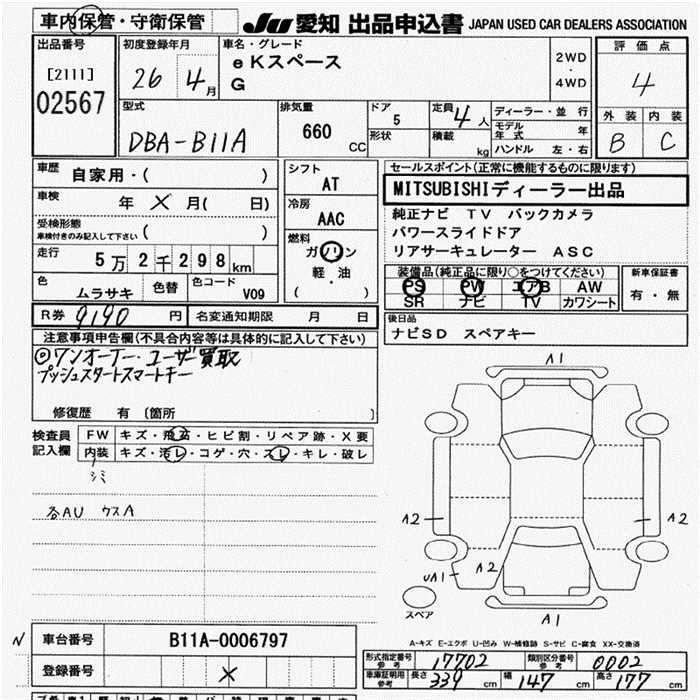 車内保管・守衛保管
JU 愛知 出品申込書 JAPAN USED CAR DEALERS ASSOCIATION
出品番号
[2111]
02567
初度登録年月
26 4月
車名・グレード
eKスペース
G
2WD
・
4WD
評価点
4
外装 内装
B C
型式
DBA-B11A
排気量
660
CC
ドア
5
形状
定員 4人
積載 kg
ディーラー・並行
モデル年式 年
ハンドル 左・右
車歴
自家用・( )
車検
年 X 月( 日)
受検形態
車検付きのみ記入して下さい ( )
走行
5万2千298km
色
ムラサキ
色替
色コード
V09
シフト
AT
冷房
AAC
燃料
ガソリン
軽・油
( )
セールスポイント(正常に機能するものに限ります)
MITSUBISHIディーラー出品
純正ナビ TV バックカメラ
パワースライドドア
リアサーキュレーター ASC
装備品(純正品に限り○をつけてください)
PS PW エアB AW
SR ナビ TV カワシート
新車保証書
有・無
R券 9190 円 名変通知期限 月 日
後日品
ナビSD スペアキー
注意事項申告欄(不具合内容等は具体的に記入して下さい)
◎ワンオーナー・ユーザー買取
プッシュスタートスマートキー
修復歴 有 〔箇所 〕
検査員
記入欄
FW キズ・飛石・ヒビ割・リペア跡・X要
内装 キズ・汚レ・コゲ・穴・スレ・キレ・破レ
シミ
各AU ウスA
A1
A2
A2
UA1
A2
A1
スペア
A-キズ E-エクボ U-凹み W-補修跡 S-サビ C-腐食 XX-交換済
N
車台番号 B11A-0006797
登録番号 X
形式指定番号 参考 17702 類別区分番号 参考 0002
車庫証明用 参考 長さ 339 cm 幅 147 cm 高さ 177 cm